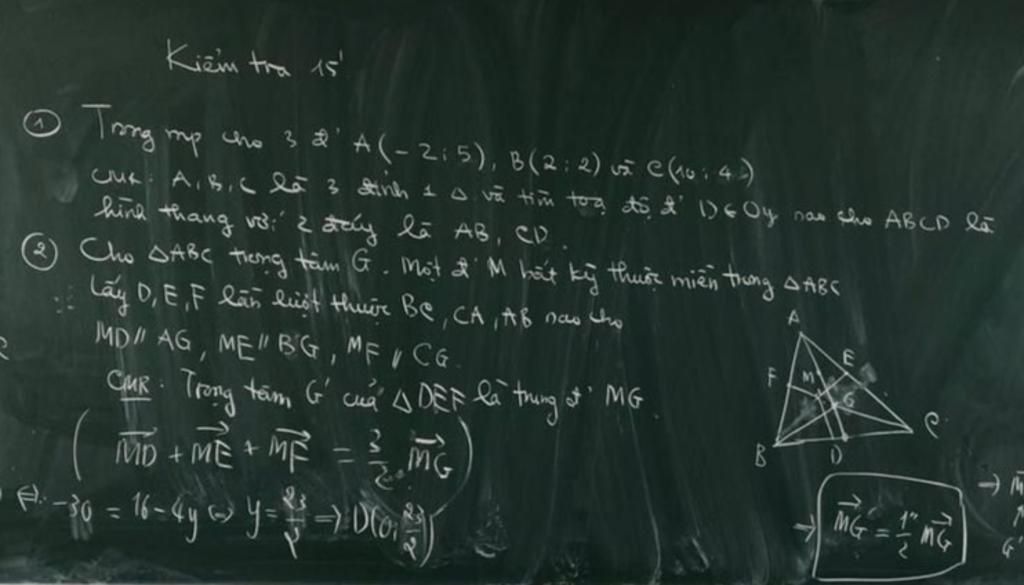 Kiểm tra 15'
① Trong mp cho 3 đ' A(-2;5), B(2;2) và C(10;4)
CMR: A, B, C là 3 đỉnh 1 Δ và tìm toạ độ đ' D∈Oy sao cho ABCD là
hình thang với 2 đáy là AB, CD.
② Cho ΔABC trọng tâm G. Một đ' M bất kỳ thuộc miền trong ΔABC
Lấy D, E, F lần lượt thuộc BC, CA, AB sao cho
MD // AG, ME // BG, MF // CG.
CMR: Trọng tâm G' của ΔDEF là trung đ' MG.
(MD + ME + MF = 3/2 MG)
⇔ -30 = 16 - 4y ⇔ y = 23/2 ⇒ D(0; 23/2)
A
E
F M
G
B D C
→ MG = 1/2 MG
→
G'